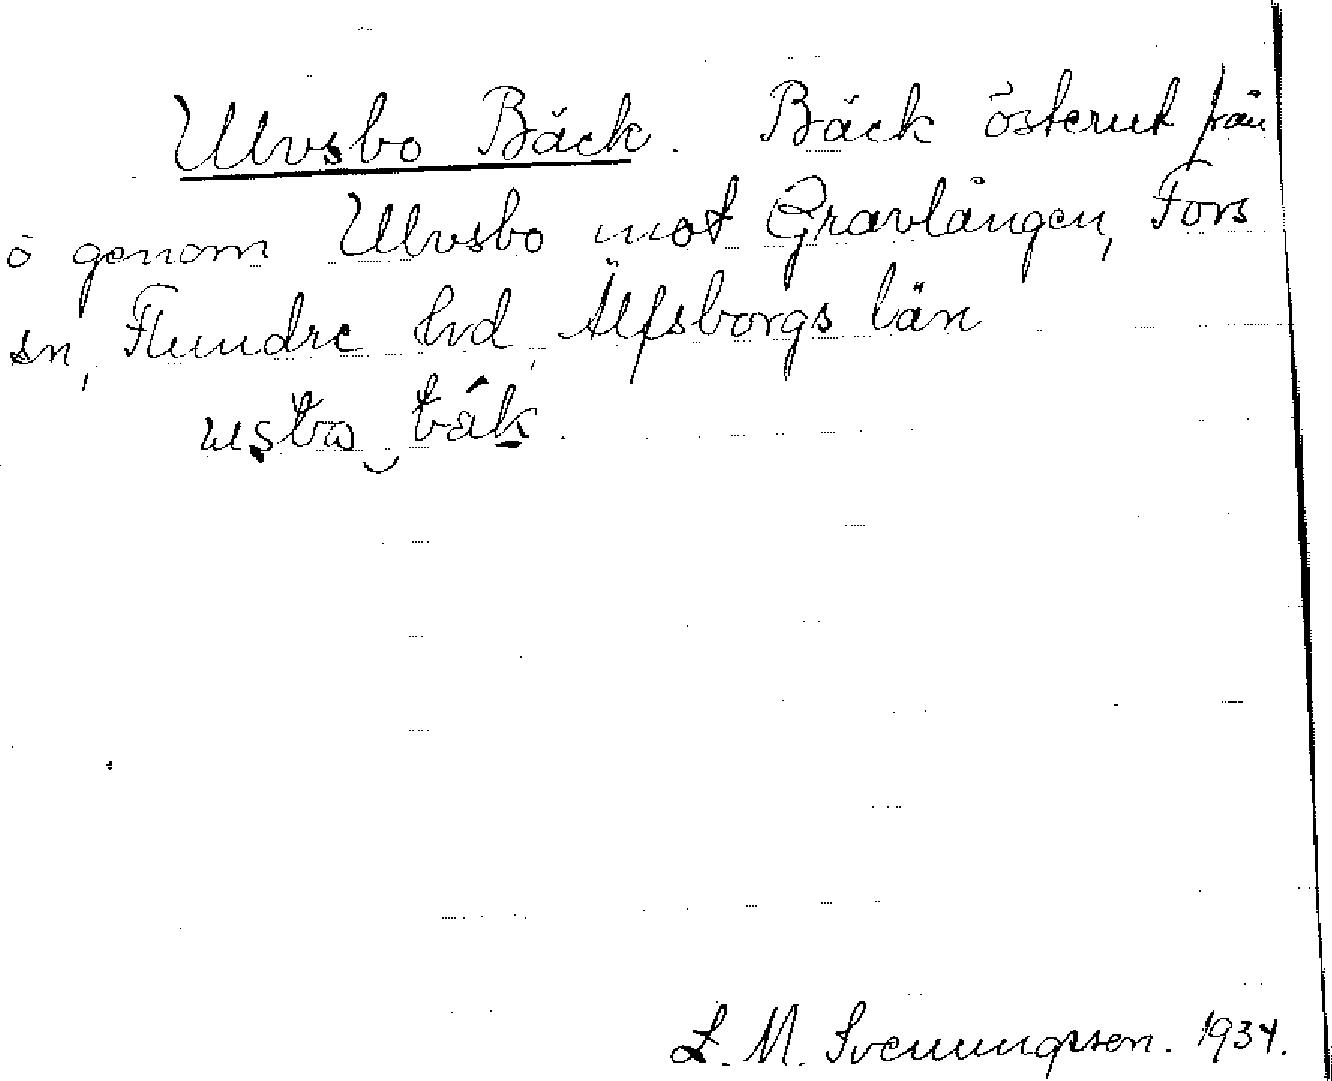 Ulvsbo Bäck. Bäck österut från
o genom Ulvsbo mot Gravlången, Fors
sn, Flundre hd, Älfsborgs län
usbo bäk.
L. M. Svenungsson. 1934.